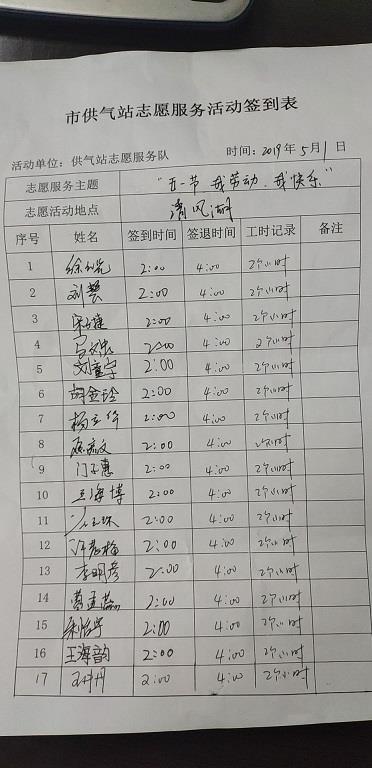 市供气站志愿服务活动签到表
活动单位：供气站志愿服务队 时间：2019年5月1日
志愿服务主题 "五一节 我劳动.我快乐"
志愿活动地点 清风湖
序号 姓名 签到时间 签退时间 工时记录 备注
1 2:00 4:00 2个小时
2 刘慧 2:00 4:00 2个小时
3 2:00 4:00 2个小时
4 2:00 4:00 2个小时
5 刘童宁 2:00 4:00 2个小时
6 胡金玲 2:00 4:00 2个小时
7 2:00 4:00 2个小时
8 2:00 4:00 2个小时
9 2:00 4:00 2个小时
10 王海博 2:00 4:00 2个小时
11 2:00 4:00 2个小时
12 2:00 4:00 2个小时
13 李明彦 2:00 4:00 2个小时
14 2:00 4:00 2个小时
15 2:00 4:00 2个小时
16 王海韵 2:00 4:00 2个小时
17 2:00 4:00 2个小时